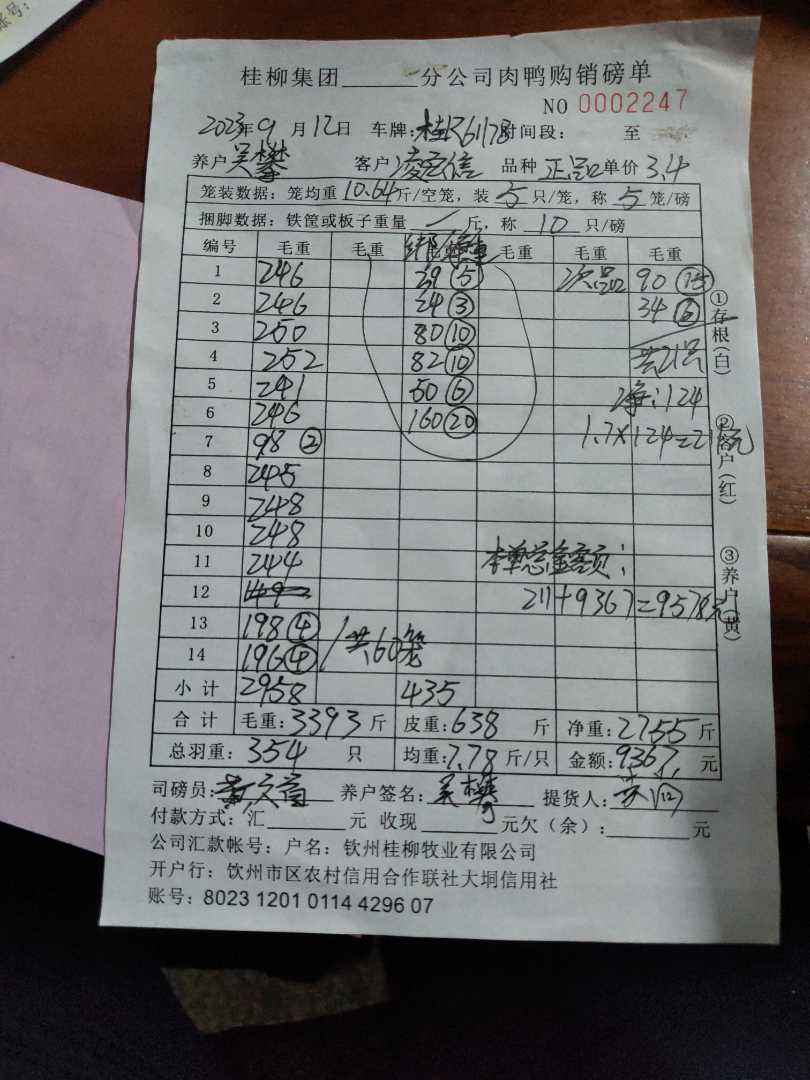 账号:
桂柳集团______分公司肉鸭购销磅单
NO 0002247
2023年9月12日 车牌:桂R61178 时间段: 至
养户 吴攀 客户 凌云信 品种 正品 单价 3.4
笼装数据:笼均重10.64斤/空笼,装5只/笼,称5笼/磅
捆脚数据:铁筐或板子重量 / 斤,称10只/磅
编号 毛重 毛重 毛重 毛重 毛重
1 246 39⑤ 次品 90⑮
2 246 24③ 34⑥
3 250 80⑩
4 252 82⑩ 共21只
5 241 50⑥ 净:124
6 246 160⑳ 1.7×124=211元
7 98②
8 245
9 248
10 248
11 244 本单总金额:
12 149 211+9367=9578元
13 198④ 共60笼
14 196④
小计 2958 435
合计 毛重:3393斤 皮重:638斤 净重:2755斤
总羽重:354只 均重:7.78斤/只 金额:9367.元
司磅员: 养户签名:吴攀 提货人:
付款方式:汇______元 收现______元欠(余):______元
公司汇款帐号:户名:钦州桂柳牧业有限公司
开户行:钦州市区农村信用合作联社大垌信用社
账号:8023 1201 0114 4296 07
①存根(白)
②客户(红)
③养户(黄)